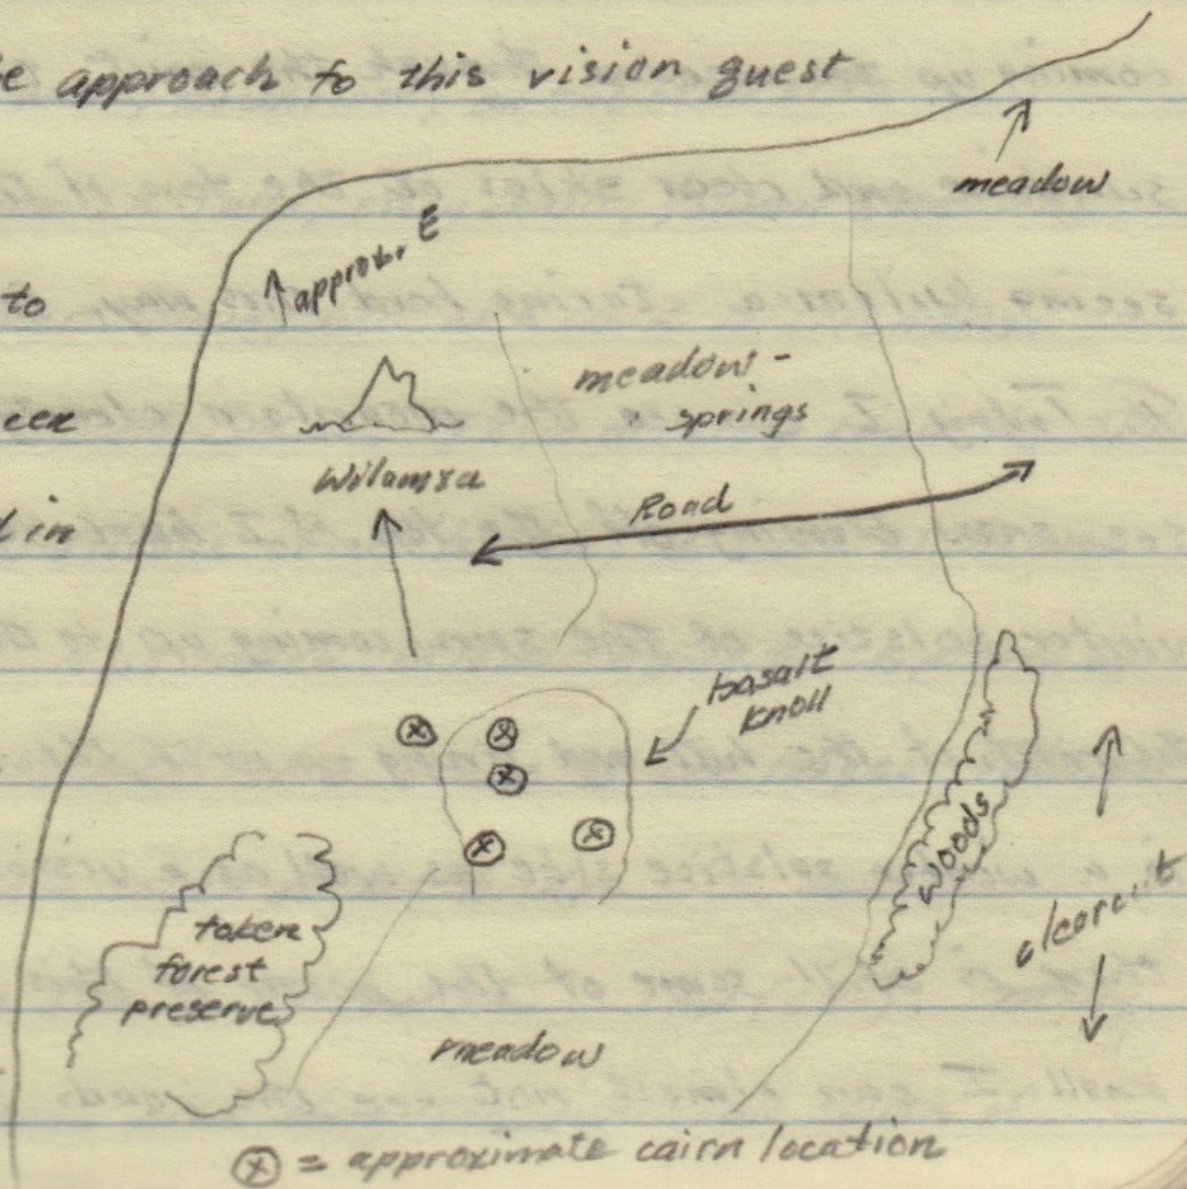 approach to this vision quest
meadow
approx. E
to
meadow -
springs
Wilamsa
Road
in
basalt
knoll
woods
clearcut
token
forest
preserve
meadow
ⓧ = approximate cairn location